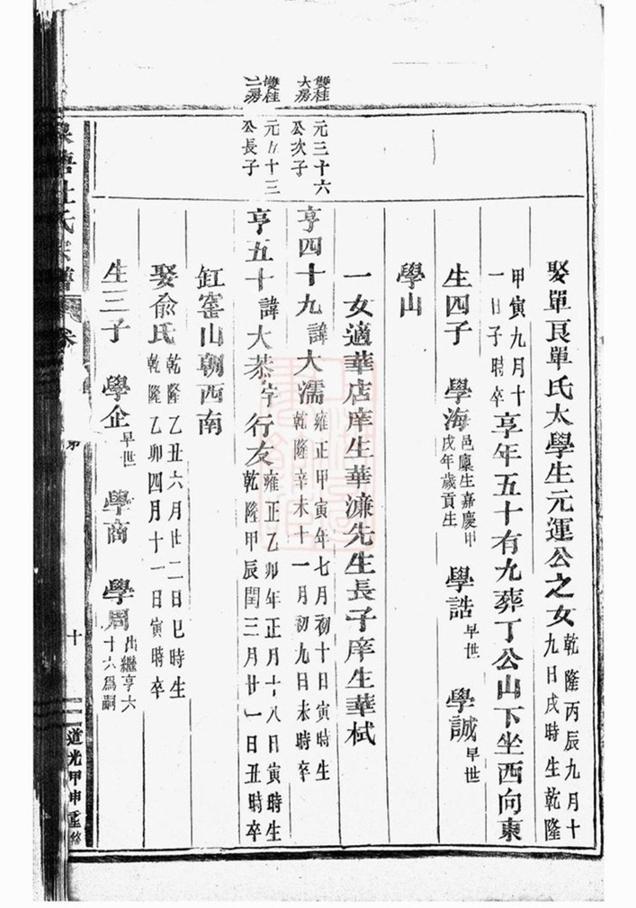 娶單良單氏太學生元運公之女乾隆丙辰九月十九日戌時生乾隆
甲寅九月十一日子時卒享年五十有九葬丁公山下坐西向東
生四子 學海邑廩生嘉慶甲戌年歲貢生 學誥早世 學誠早世
學山
一女適華店庠生華濂先生長子庠生華栻
雙桂大房
元三十六公次子
亨四十九諱大濡雍正甲寅年七月初十日寅時生乾隆辛未十一月初九日未時卒
雙桂二房
元五十三公長子
亨五十諱大恭字行友雍正乙卯年正月十八日寅時生乾隆甲辰閏三月廿一日丑時卒
缸窰山朝西南
娶俞氏乾隆乙丑六月廿二日巳時生乾隆乙卯四月十一日寅時卒
生三子 學企早世 學商 學周出繼亨六十六爲嗣
杜氏宗譜 卷 序 十 道光甲申重修